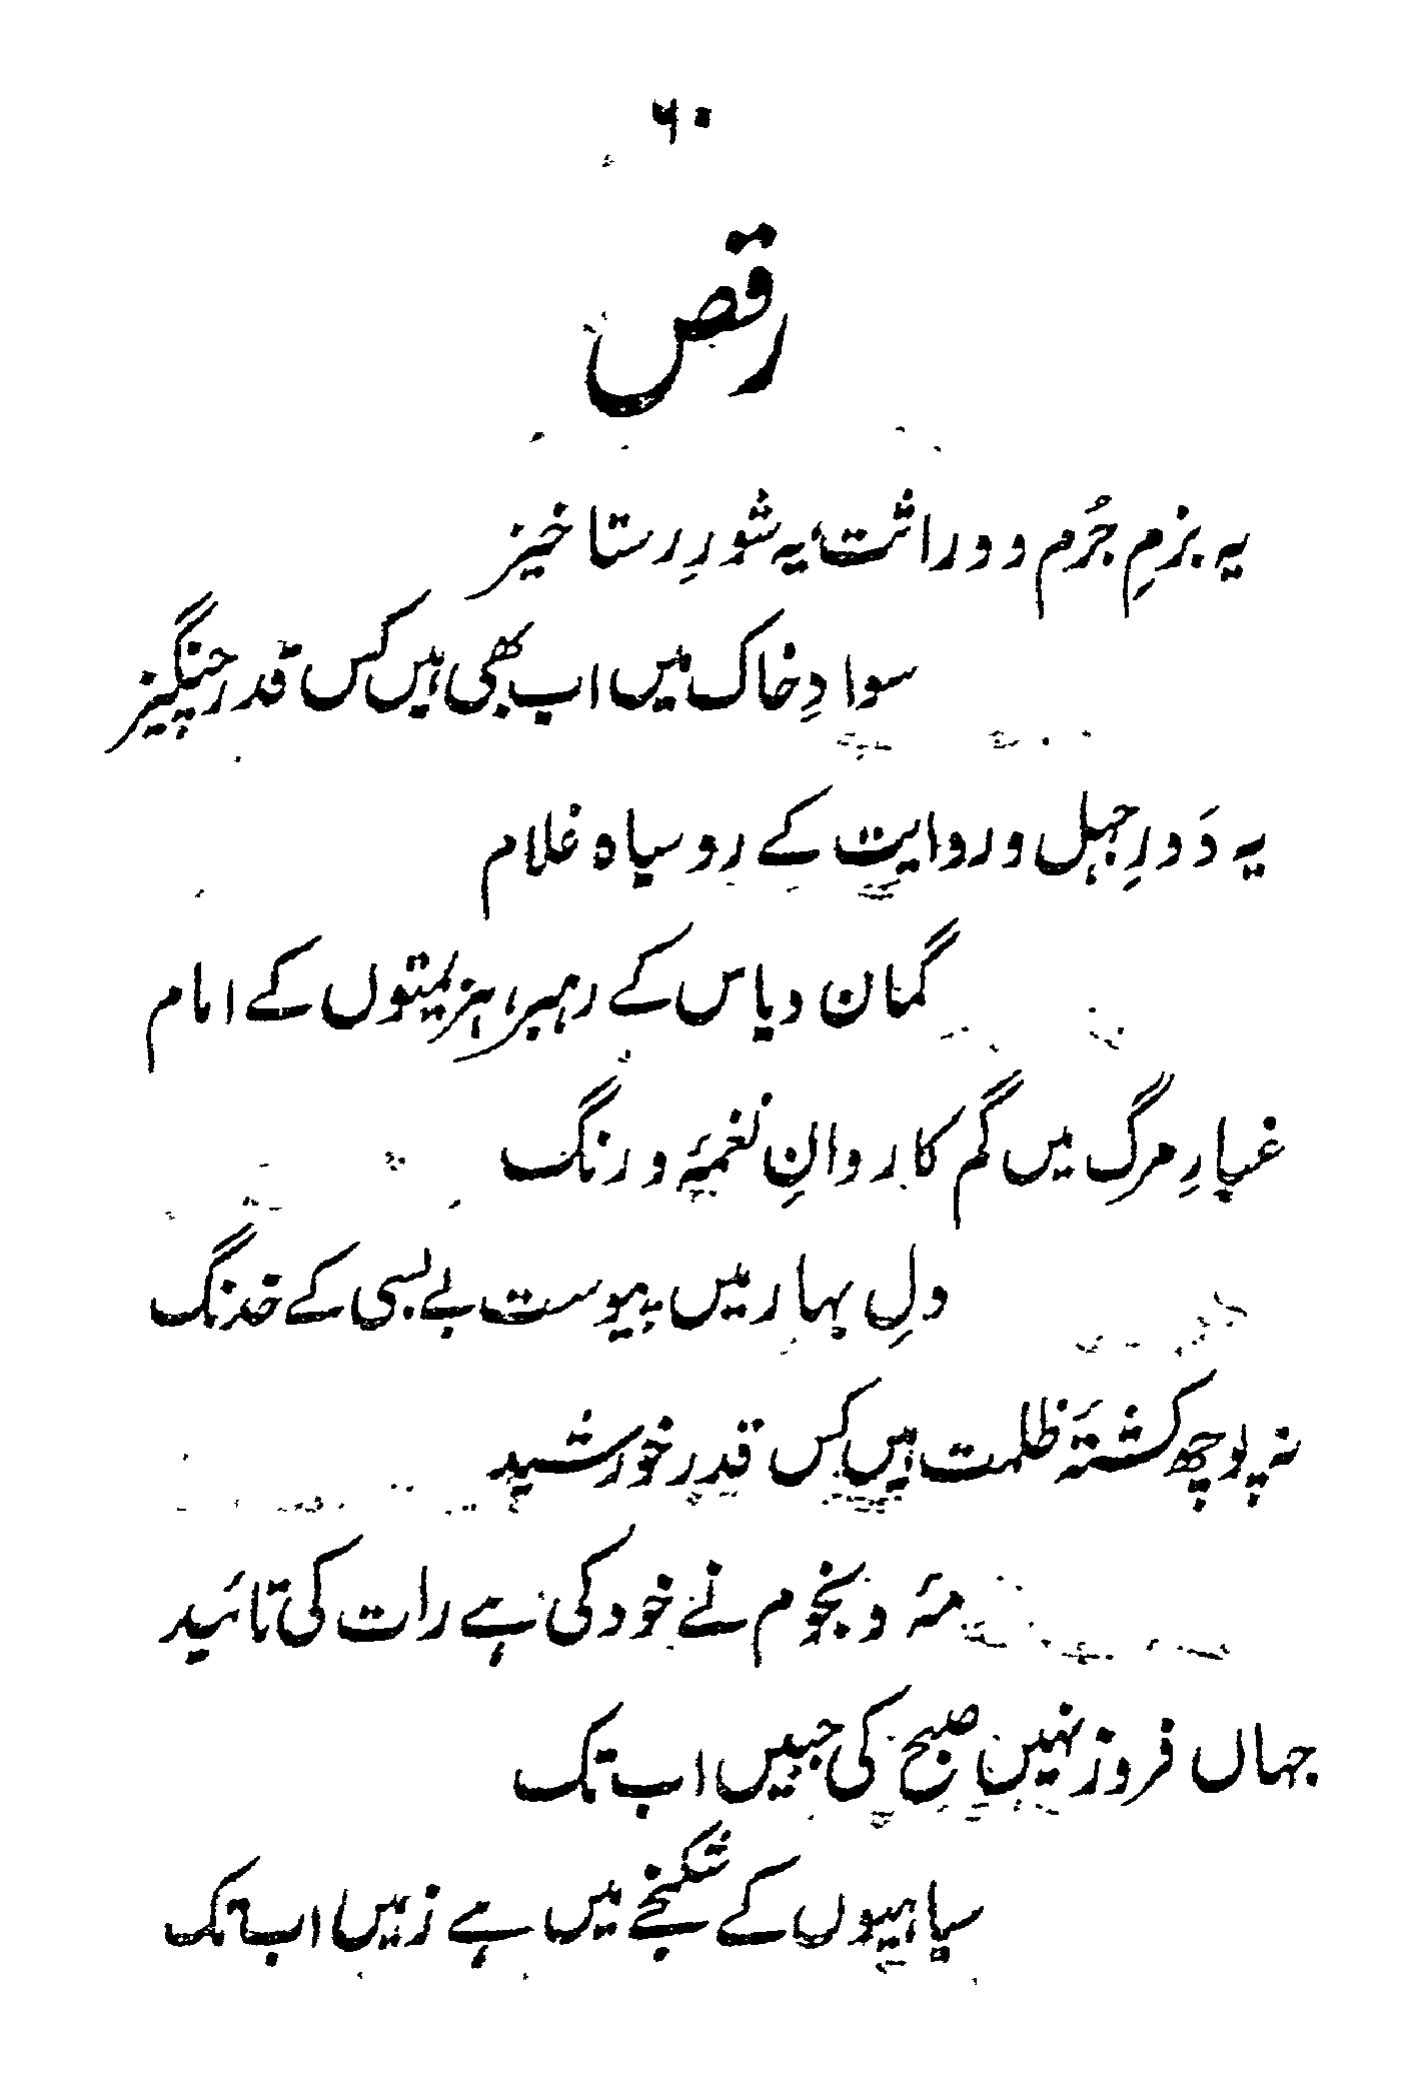 ۶۰
رقص
یہ بزمِ جُرم و وراثت، یہ شورِ رستا خیز
سوادِ خاک میں اب بھی ہیں کس قدر چنگیز
یہ دَورِ جہل و روایت کے رو سیاہ غلام
گمان و یاس کے رہبر، ہزیمتوں کے امام
غبارِ مرگ میں گم کاروانِ نغمۂ و رنگ
دلِ بہار میں پیوست بے بسی کے خدنگ
نہ پوچھ کشتۂ ظلمت ہیں کس قدر خورشید
مۂ و نجوم نے خود کی ہے رات کی تائید
جہاں فروز نہیں صبح کی جبیں اب تک
سیاہیوں کے شکنجے میں ہے زمیں اب تک